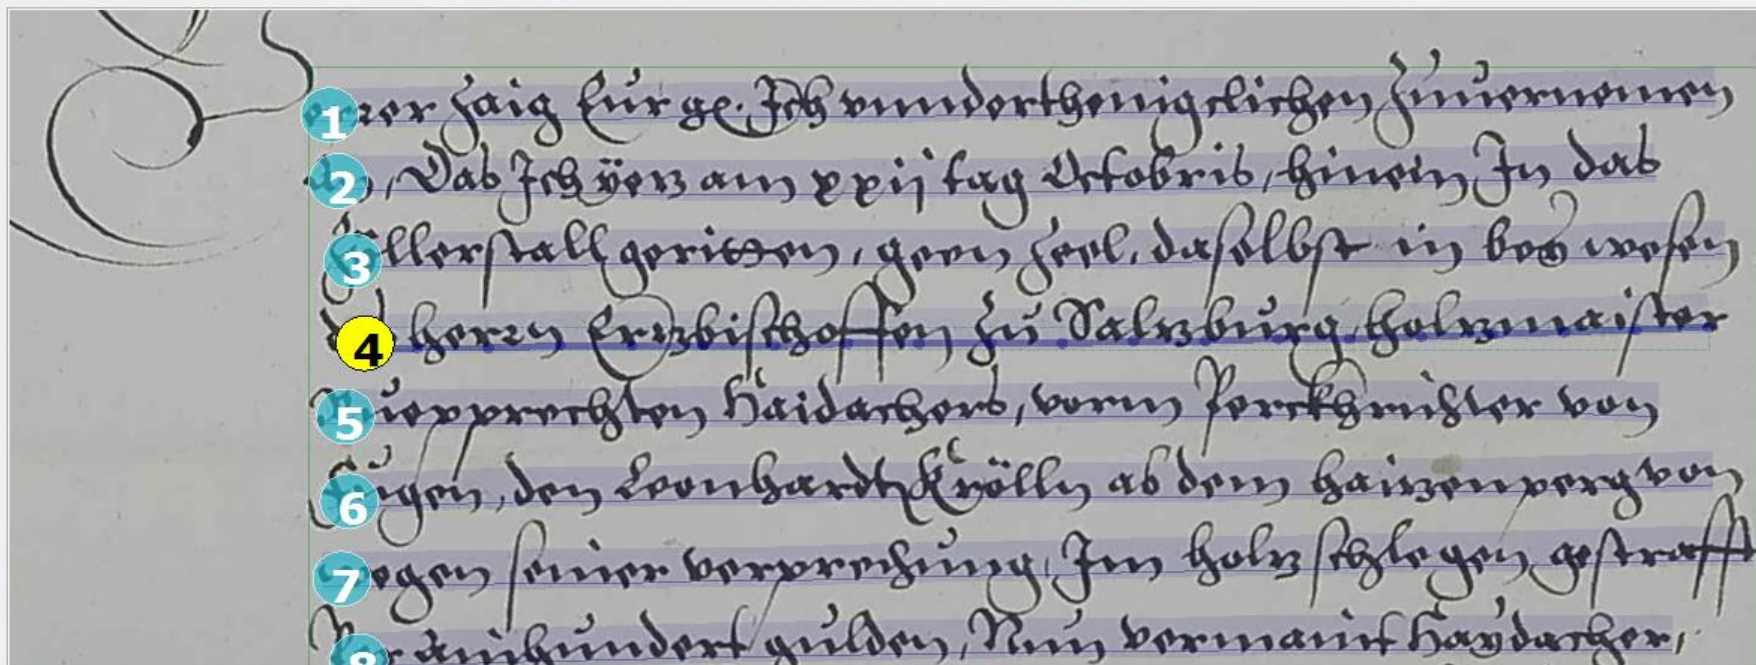 zaig Eur gn. Ich vnnderthenigclichen zuuernemen
Das Ich yetz am xxij tag Octobris, hinein In das
geritten, geen Zeel, daselbst in bey wesen
herrn Ertzbischoffen zu Saltzburg, holtzmaister
Ruepprechten Haidachers, vorm Perckhrichter von
den Leonhardt Krölln ab dem haintzenperg von
wegen seiner verprechung, Im holtz schlegen gestrafft
ainhundert gulden, Nun vermaint Haydacher,
1
2
3
4
5
6
7
8